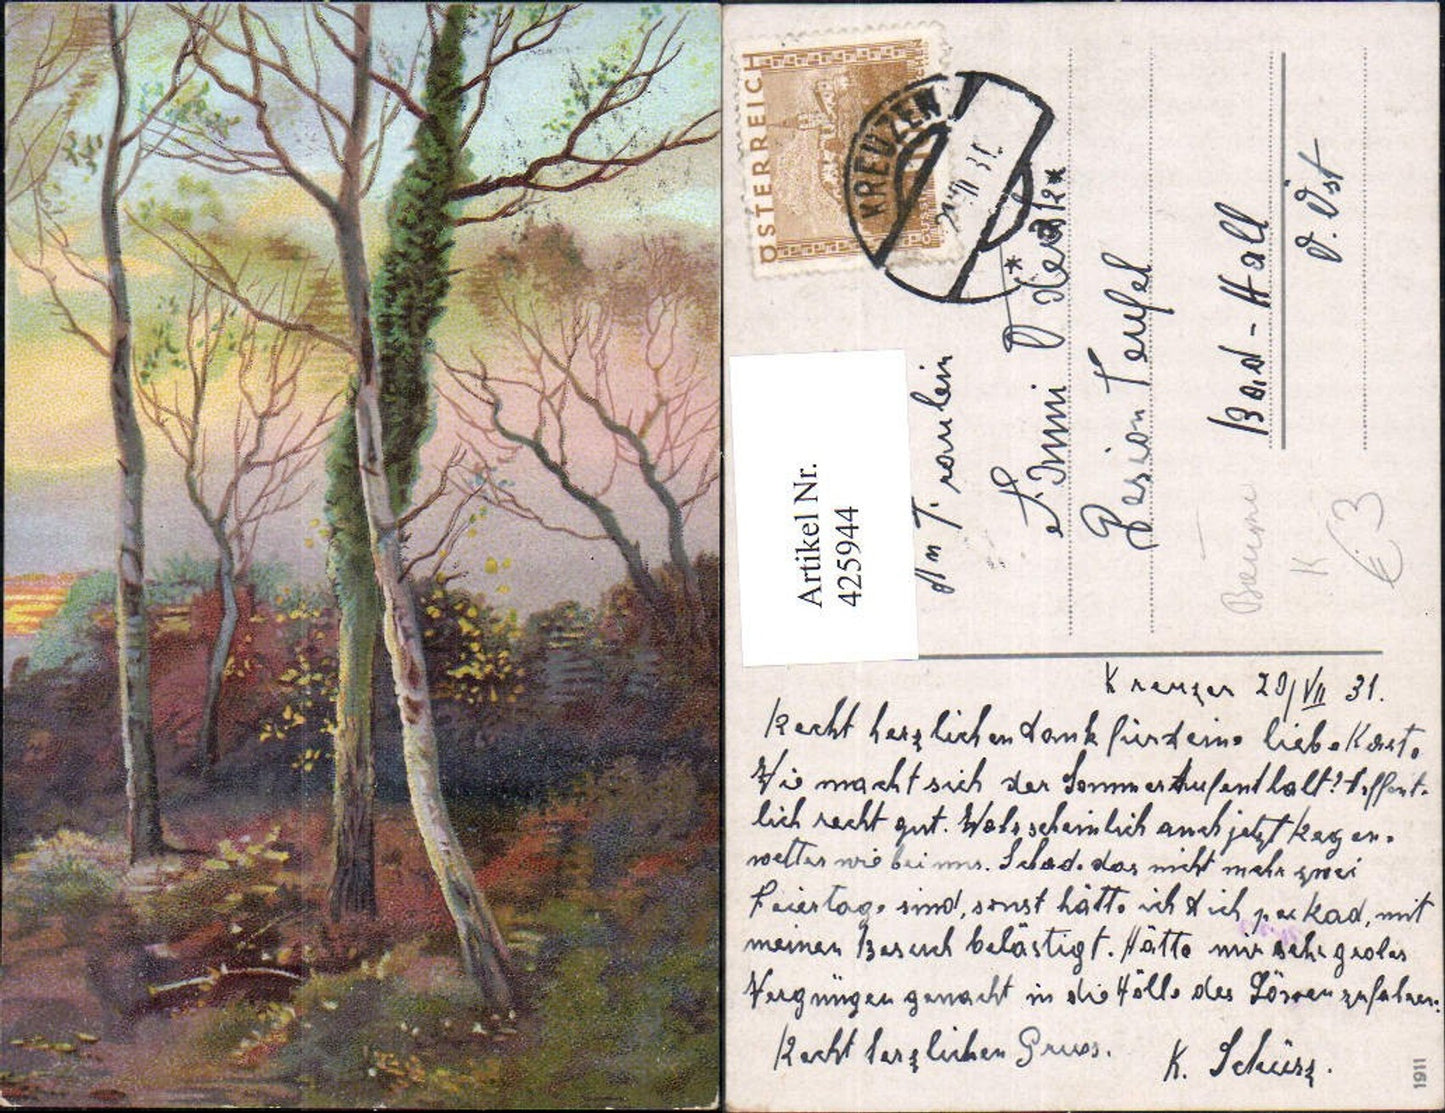 ÖSTERREICH
KREUZEN
21.VII.31.
Artikel Nr.
425944
An Fraulein
Emmi
Pension Teufel
Bad-Hall
O. Öst
Bäume
K
€ 3
Kreuzen 20/VII 31.
Recht herzlichen Dank für deine liebe Karte.
Wie macht sich der Sommeraufenthalt? Hoffent-
lich recht gut. Wahrscheinlich auch jetzt Regen-
wetter wie bei uns. Schade das nicht mehr zwei
Feiertage sind, sonst hätte ich dich per Rad, mit
meinen Besuch belästigt. Hätte mir sehr großes
Vergnügen gemacht in die Hölle des Löwen zufahren.
Recht herzlichen Gruss.
K. Schürz.
1911